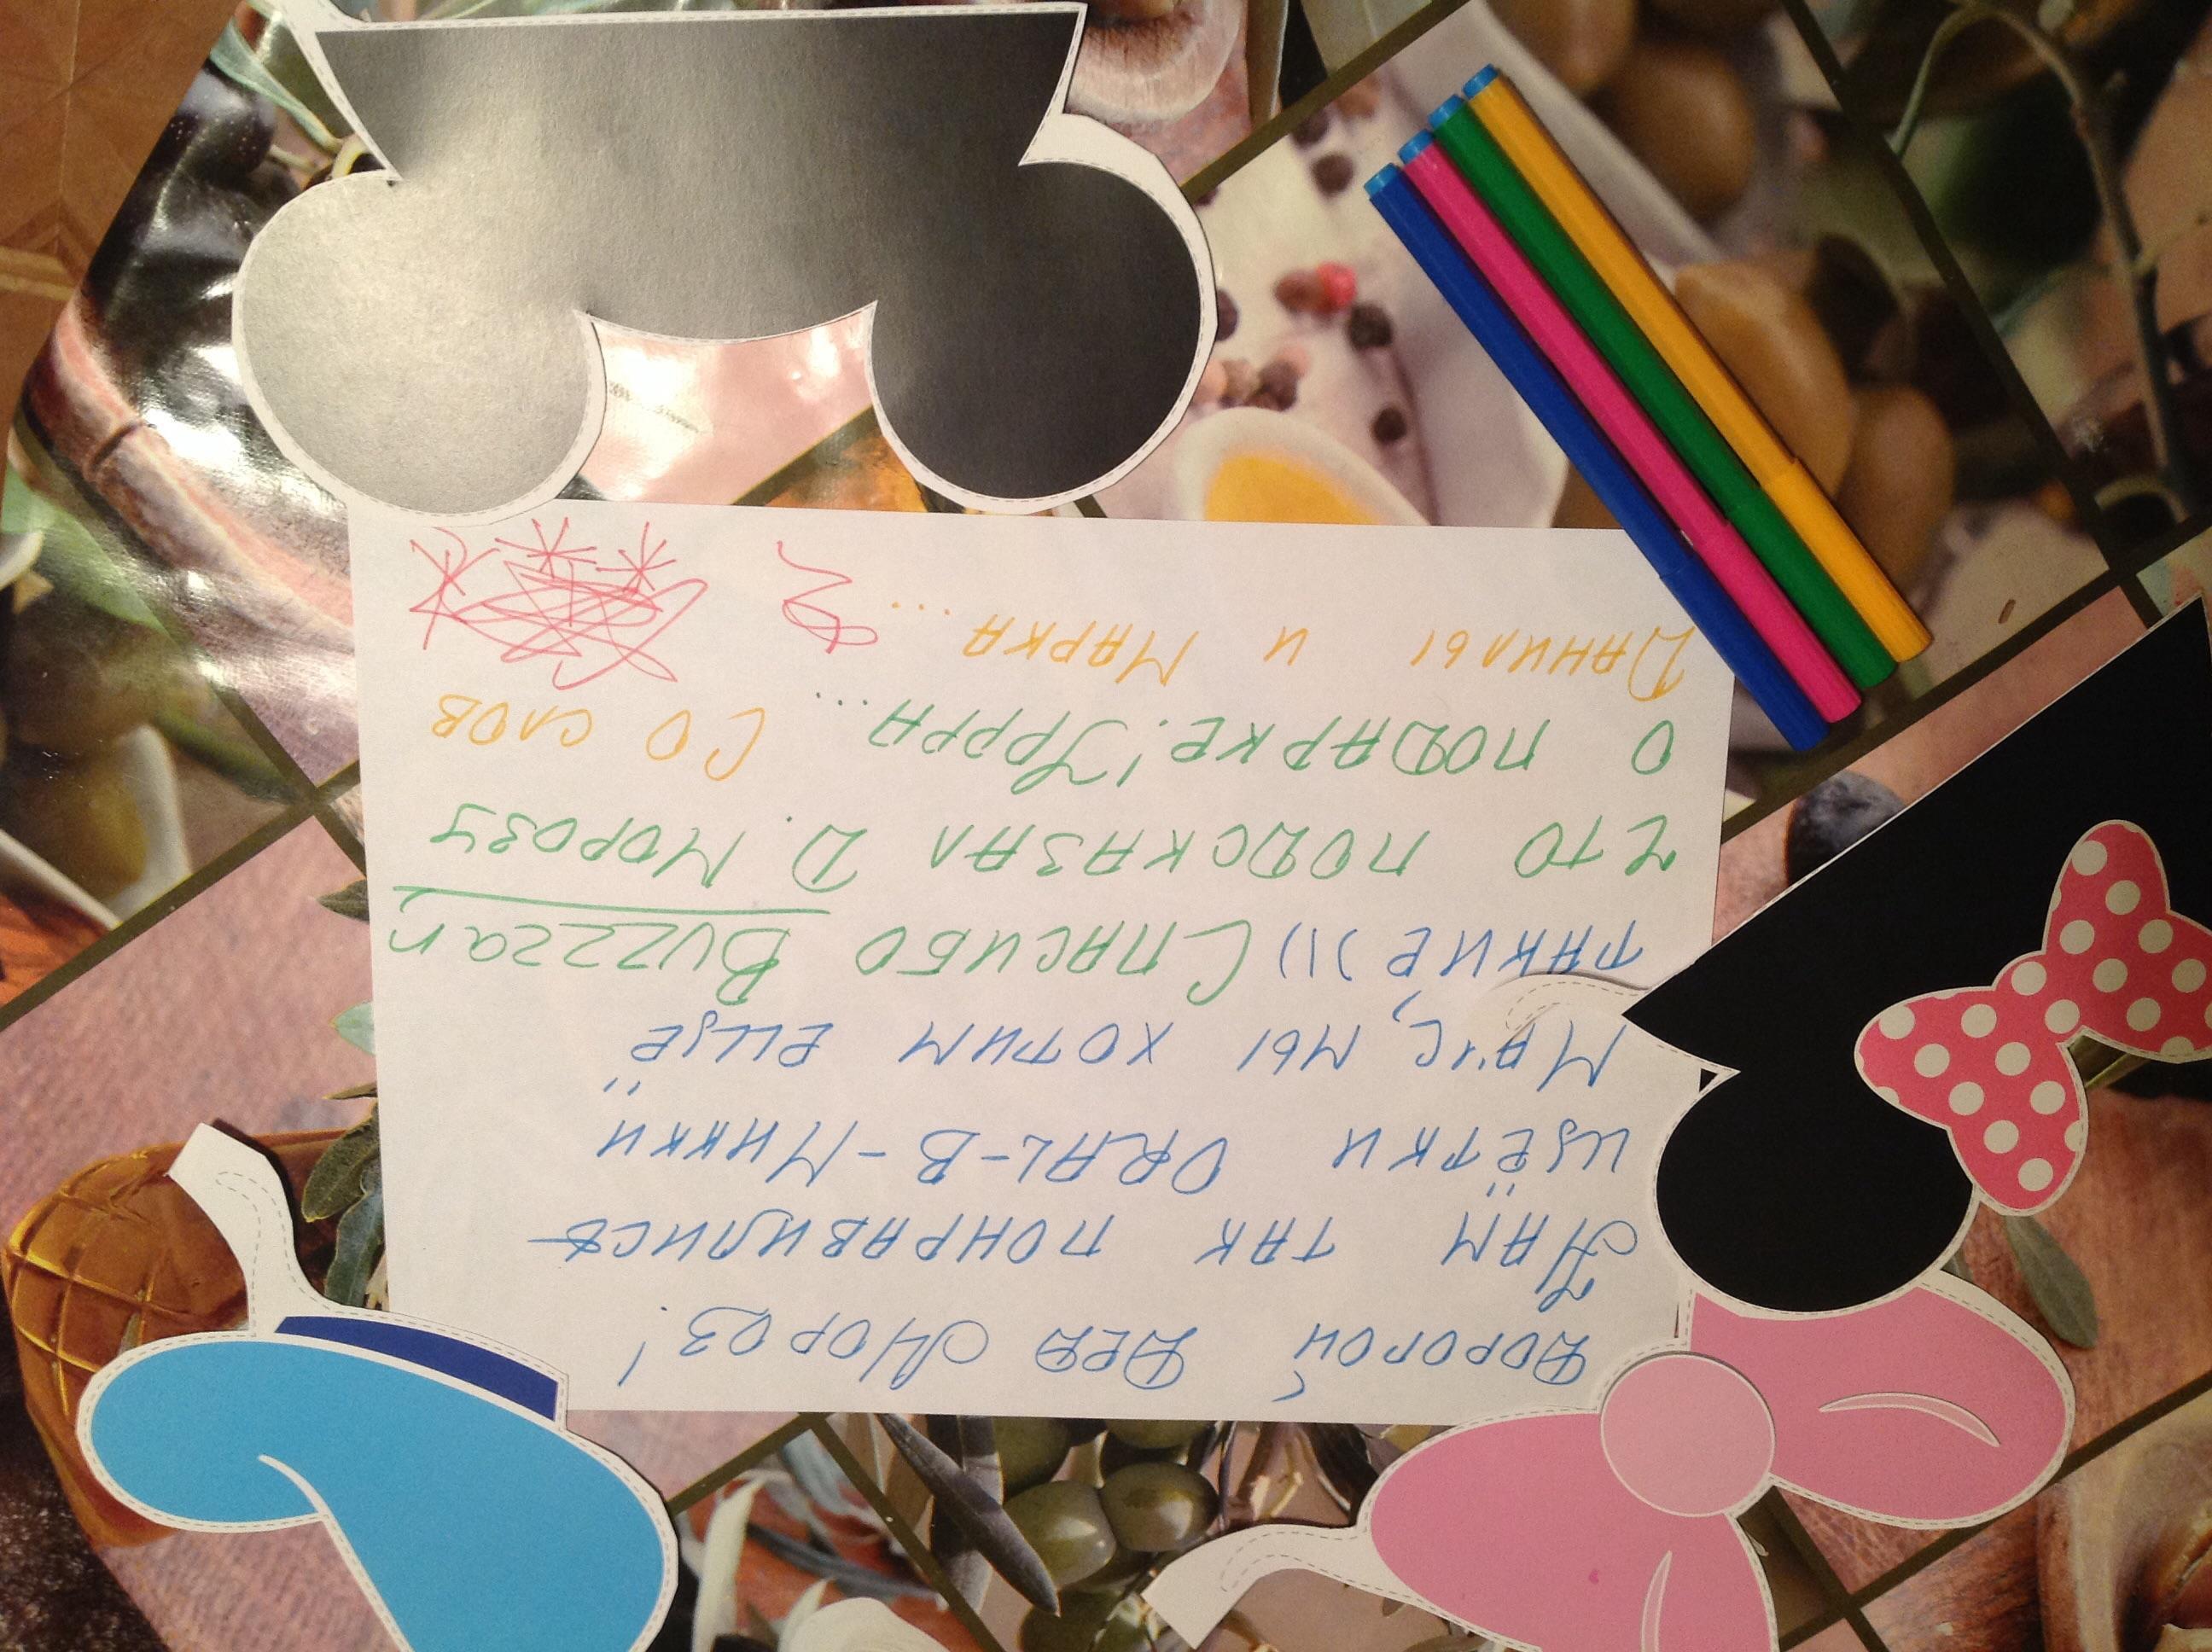 Дорогой Дед Мороз!
Нам так понравились
щётки ORAL-B-Микки
Маус, мы хотим ещё
такие))) Спасибо Buzzzan
что подсказал Д. Морозу
о подарке! Уррра... Со слов
Данилы и Марка...